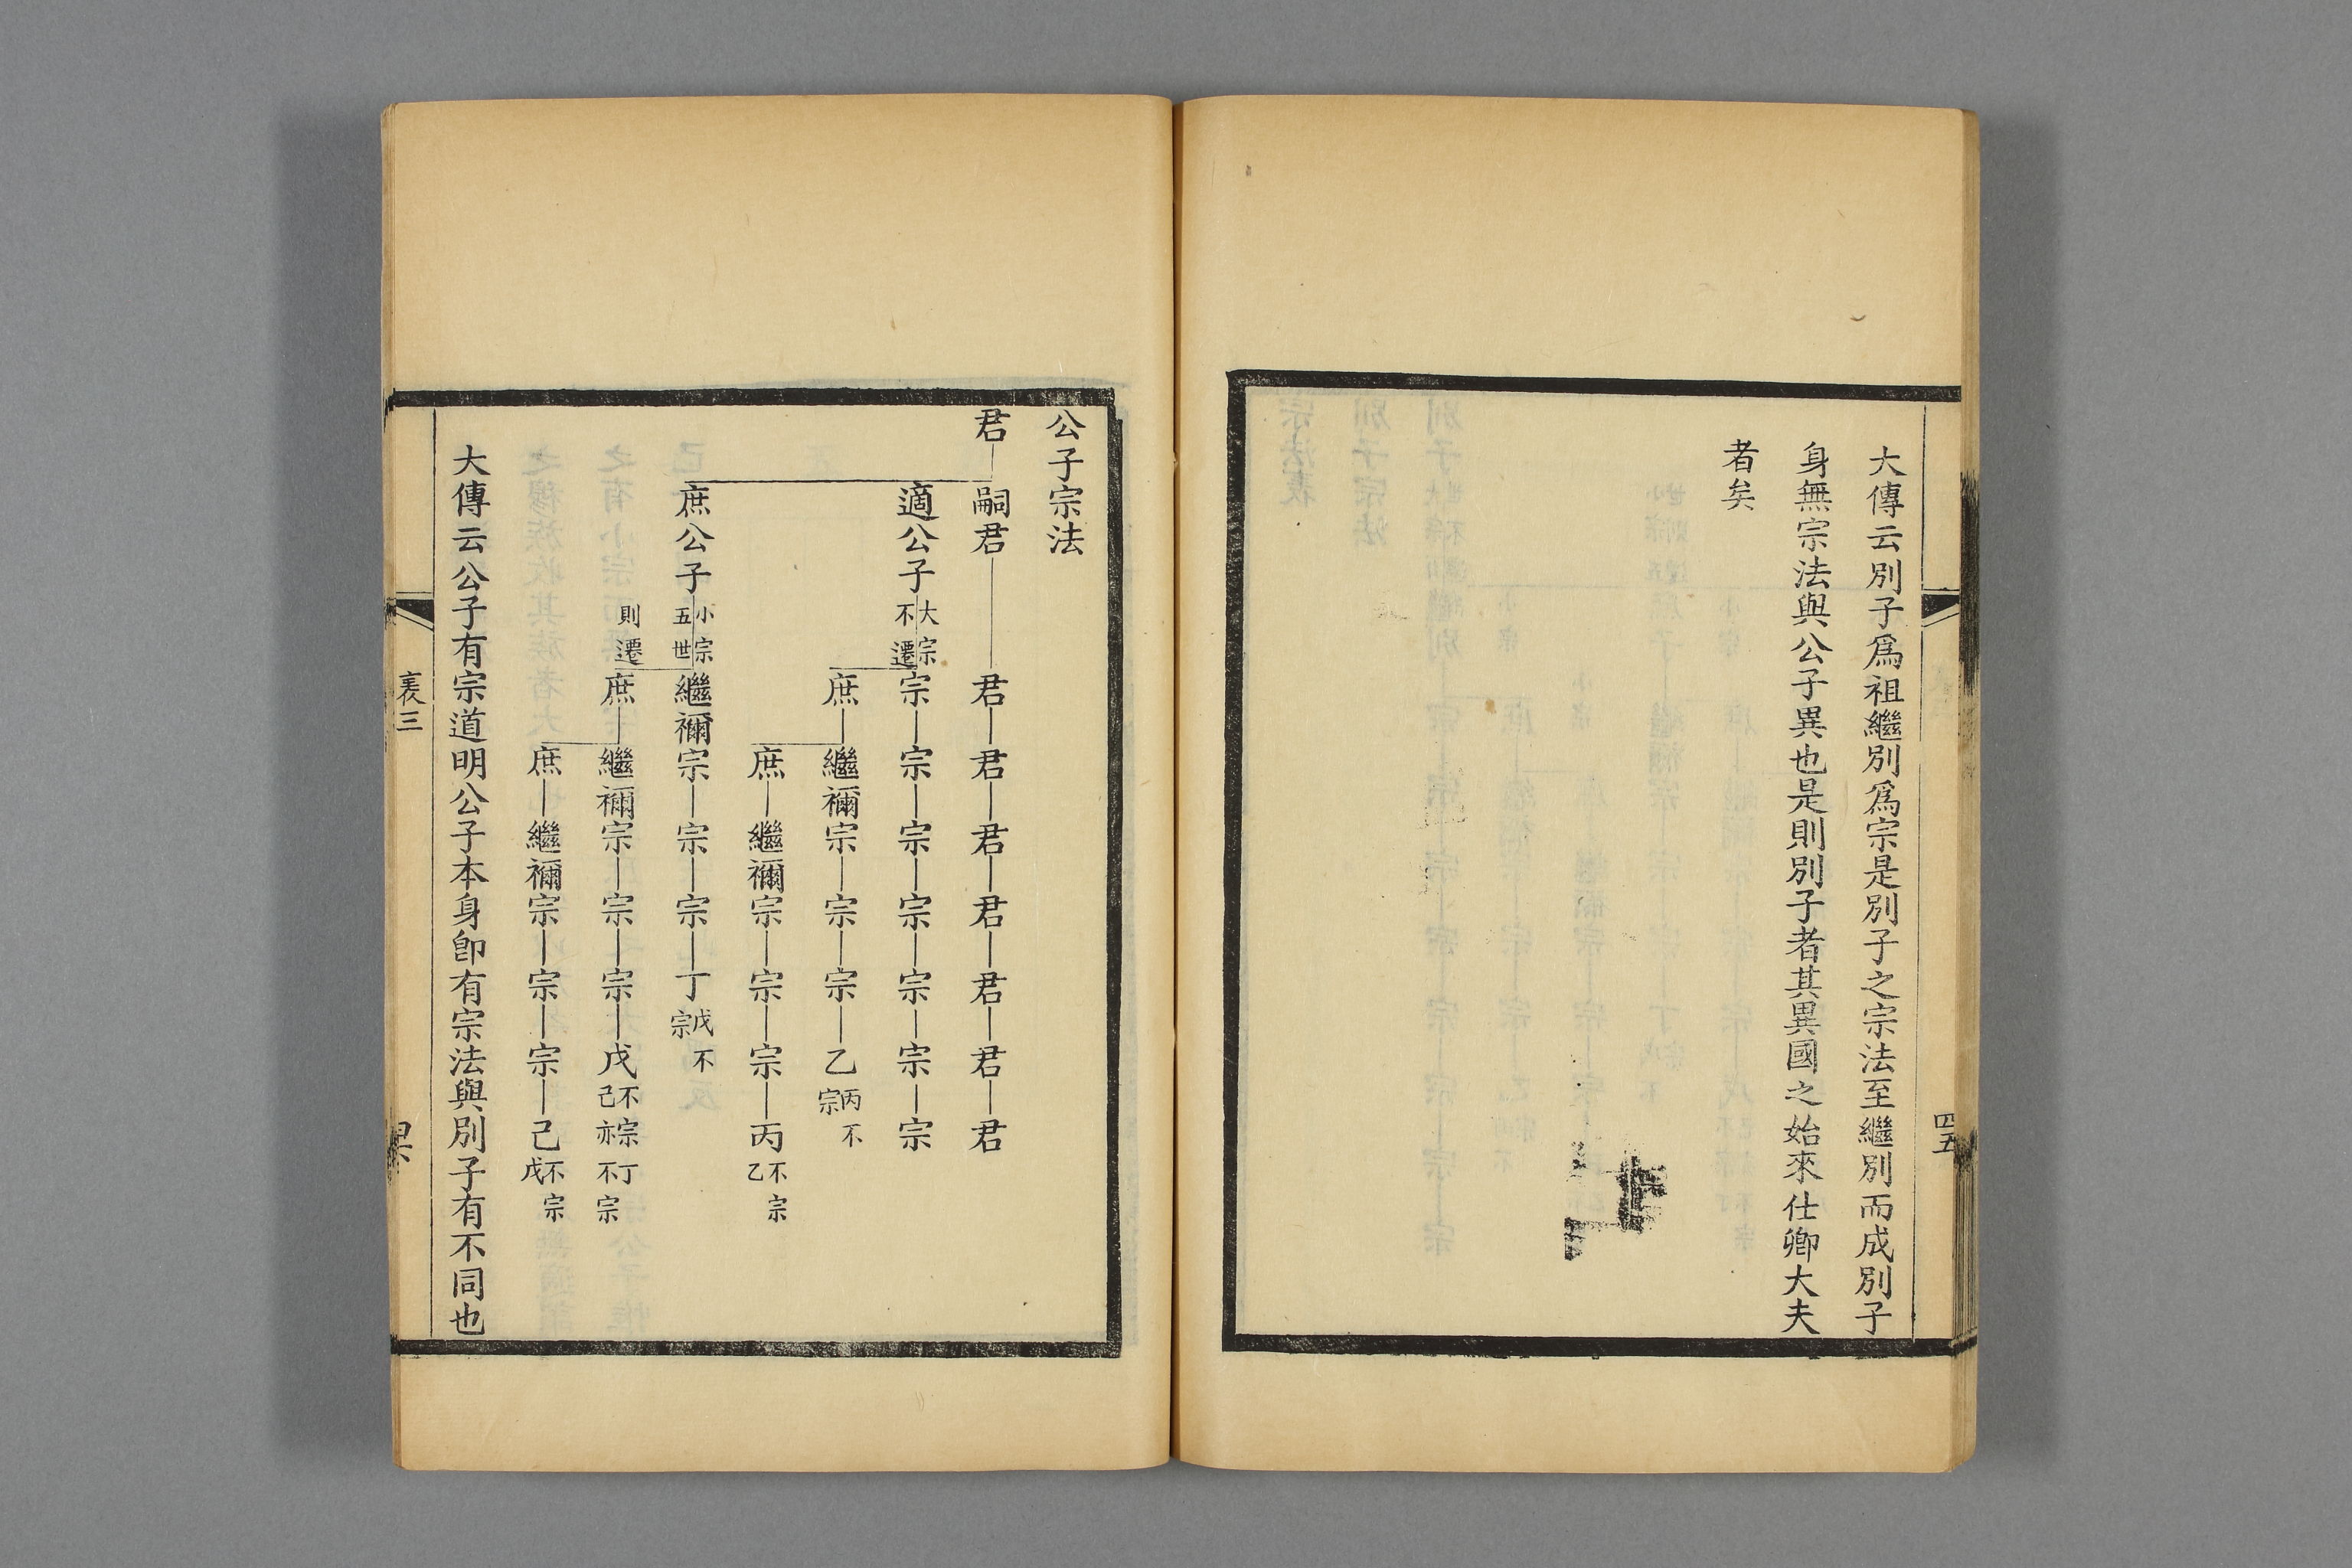 大傳云別子爲祖繼別爲宗是別子之宗法至繼別而成別子
身無宗法與公子異也是則別子者其異國之始來仕卿大夫
者矣
四五
公子宗法
君 嗣君 君 君 君 君 君 君 君
適公子 大宗不遷 宗 宗 宗 宗 宗 宗 宗
庶 繼禰宗 宗 宗 乙 丙不宗
庶 繼禰宗 宗 宗 丙 不宗乙
庶公子 小宗五世則遷 繼禰宗 宗 宗 丁 戊不宗
庶 繼禰宗 宗 宗 戊 不宗丁己亦不宗
庶 繼禰宗 宗 宗 己 不宗戊
大傳云公子有宗道明公子本身卽有宗法與別子有不同也
表三